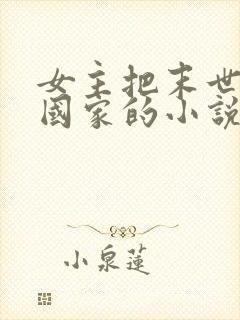 女主把末世
國家的小說
小泉蓮